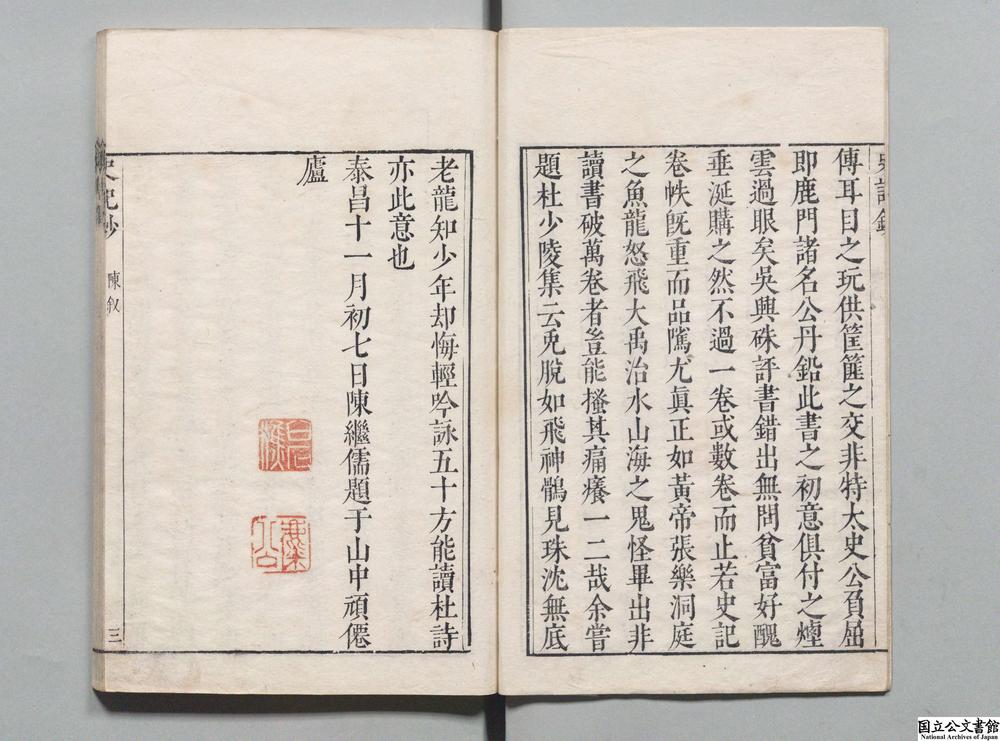 傳耳目之玩供筐篚之交非特太史公負屈
即鹿門諸名公丹鉛此書之初意俱付之煙
雲過眼矣吳興硃評書錯出無問貧富好醜
垂涎購之然不過一卷或數卷而止若史記
卷帙既重而品隲尤眞正如黃帝張樂洞庭
之魚龍怒飛大禹治水山海之鬼怪畢出非
讀書破萬卷者豈能搔其痛癢一二哉余嘗
題杜少陵集云兎脫如飛神鶻見珠沈無底
老龍知少年却悔輕吟詠五十方能讀杜詩
亦此意也
泰昌十一月初七日陳繼儒題于山中頑僊
廬
史記鈔
陳叙
三
国立公文書館
National Archives of Japan